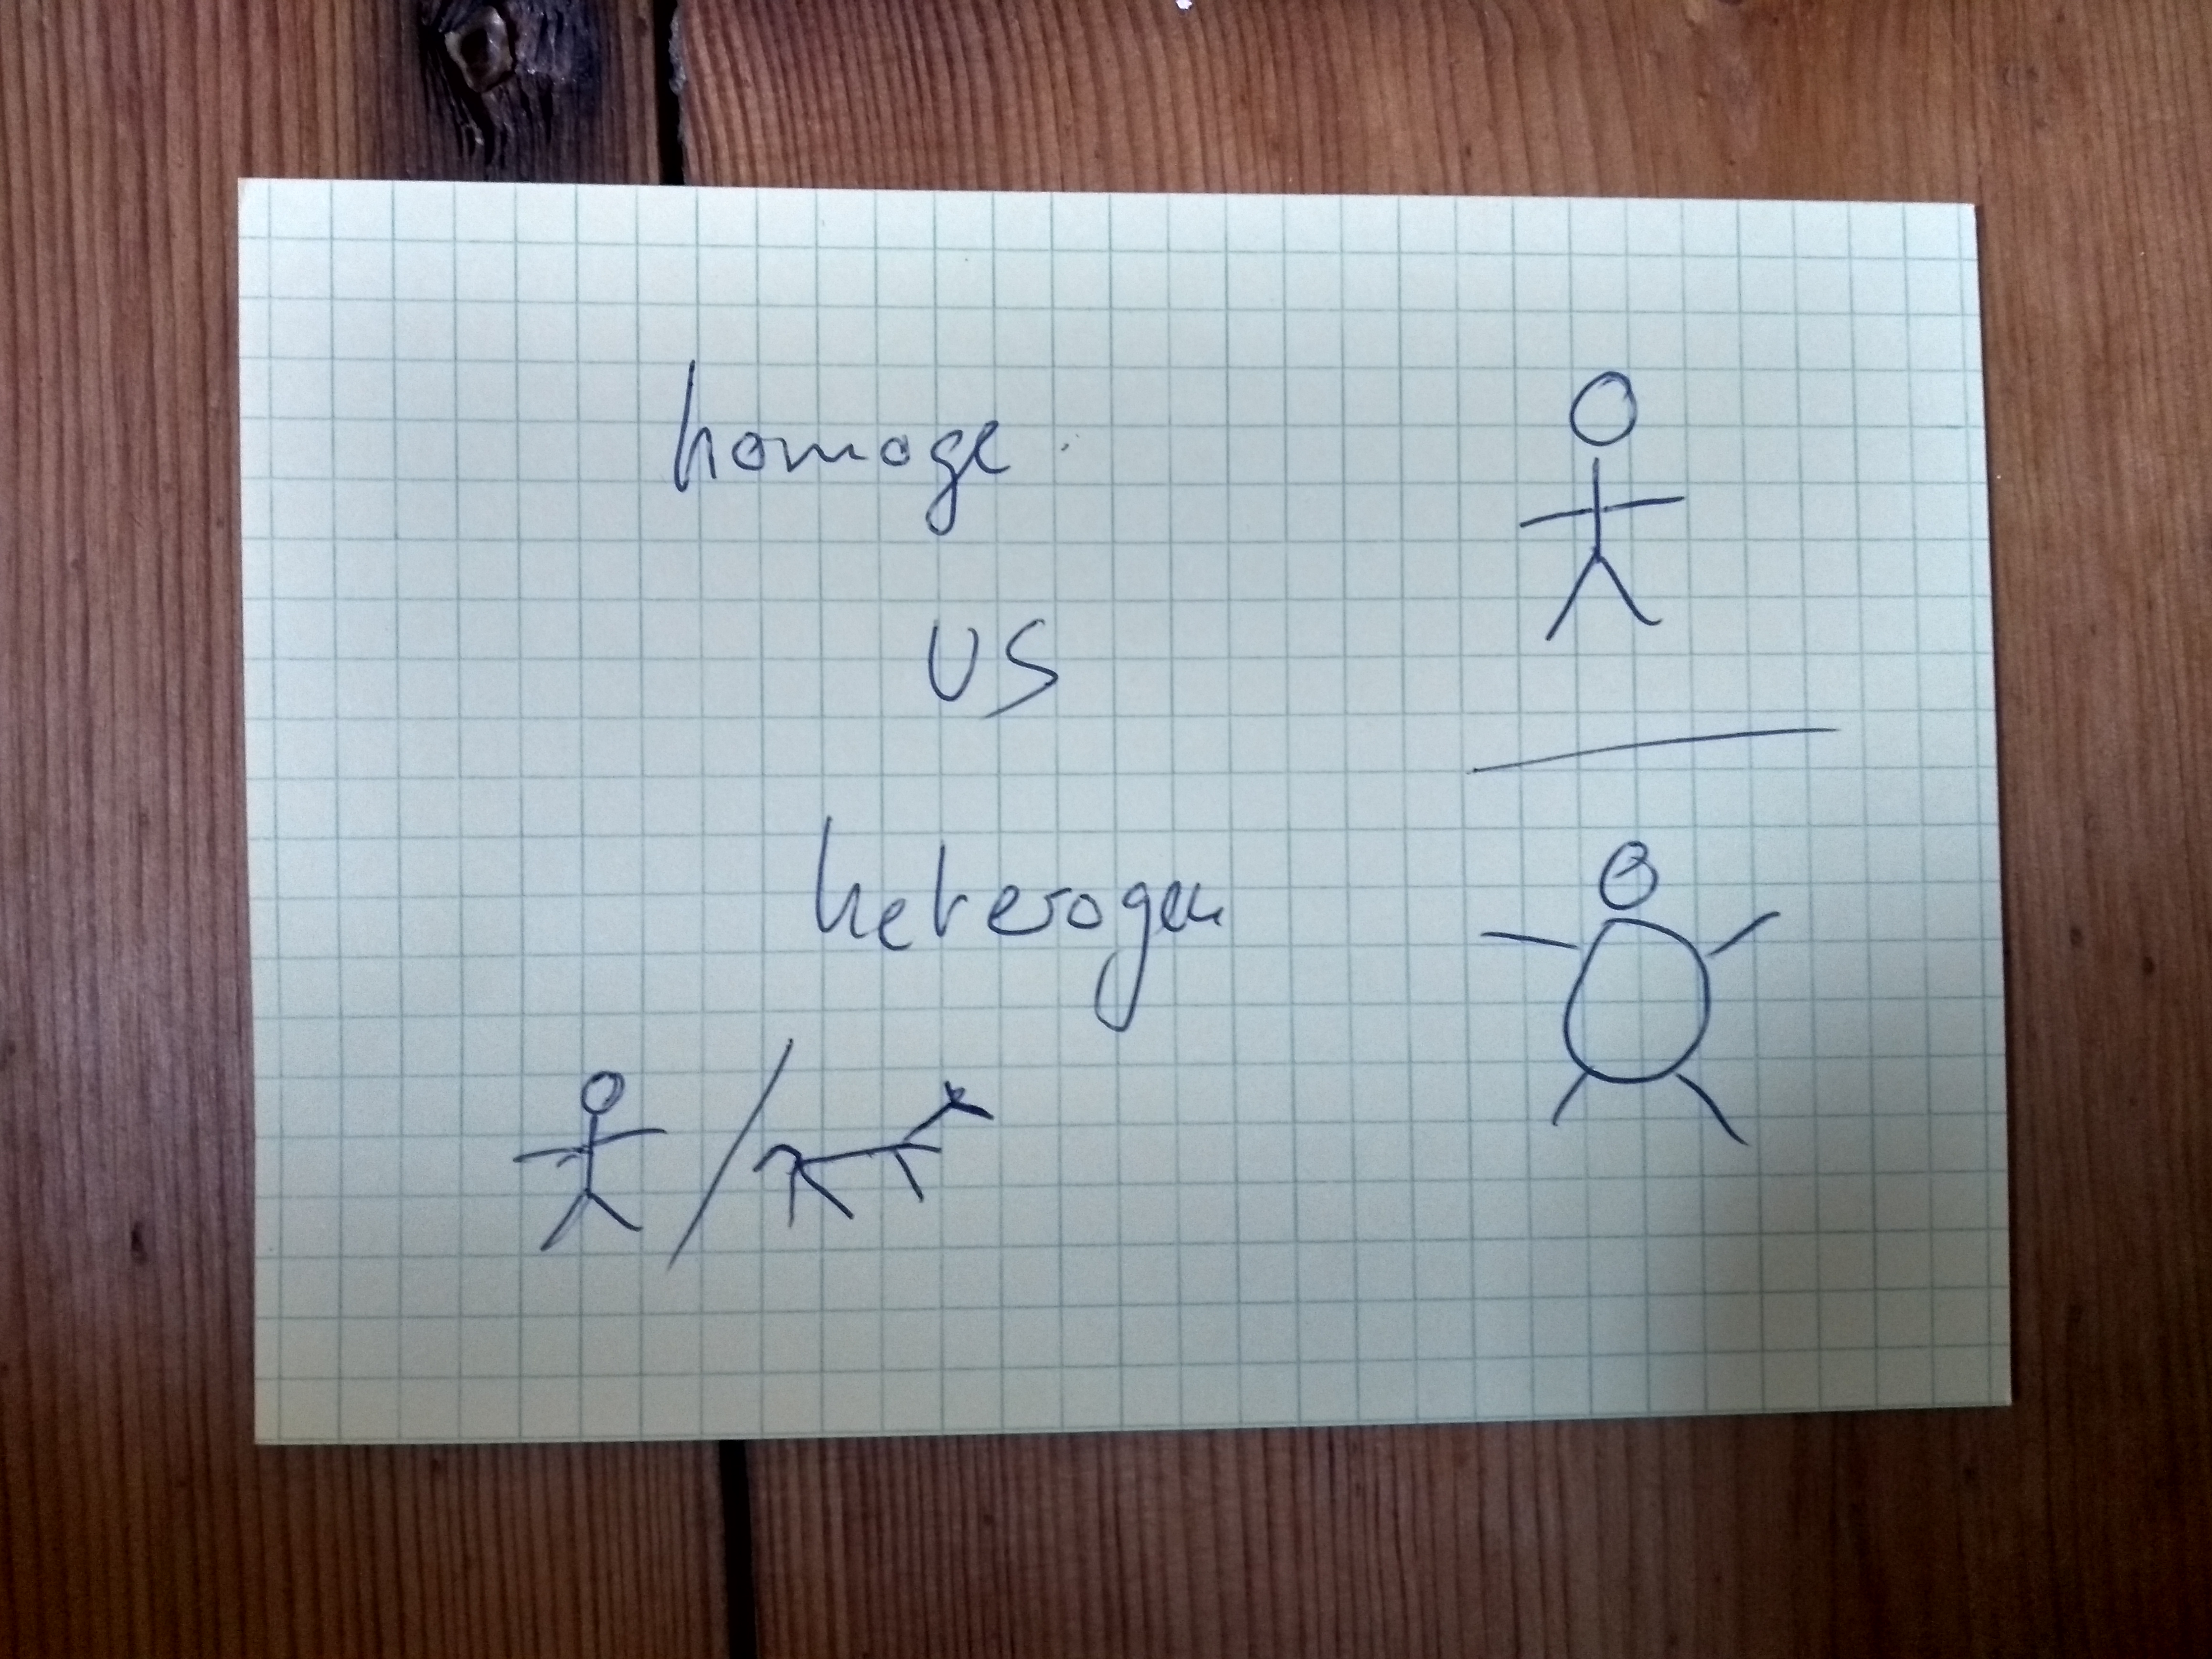 homoge
VS
heterogen